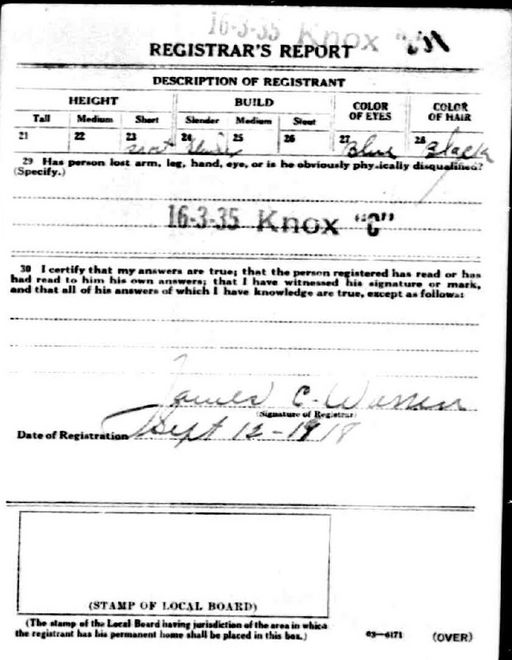 16-3-35 Knox "C"
REGISTRAR'S REPORT
DESCRIPTION OF REGISTRANT
HEIGHT BUILD COLOR OF EYES COLOR OF HAIR
Tall Medium Short Slender Medium Stout
21 22 23 24 25 26 27 28
Short Slender Blue Black
29 Has person lost arm, leg, hand, eye, or is he obviously physically disqualified?
(Specify.)
16-3-35 Knox "C"
30 I certify that my answers are true; that the person registered has read or has
had read to him his own answers; that I have witnessed his signature or mark,
and that all of his answers of which I have knowledge are true, except as follows:
James C. Warren
(Signature of Registrar)
Date of Registration Sept 12-1918
(STAMP OF LOCAL BOARD)
(The stamp of the Local Board having jurisdiction of the area in which
the registrant has his permanent home shall be placed in this box.)
03-6171 (OVER)